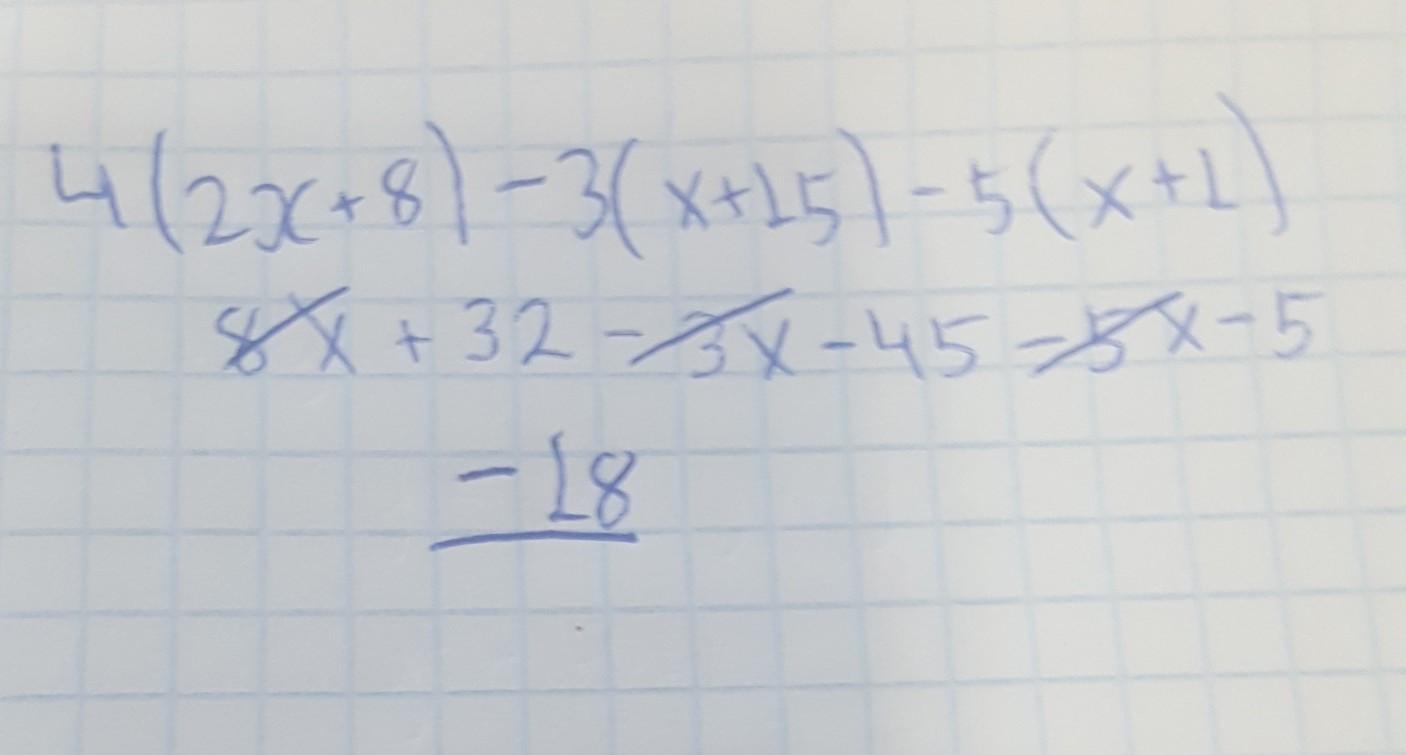 4(2x+8)-3(x+15)-5(x+1)
8x+32-3x-45-5x-5
-18